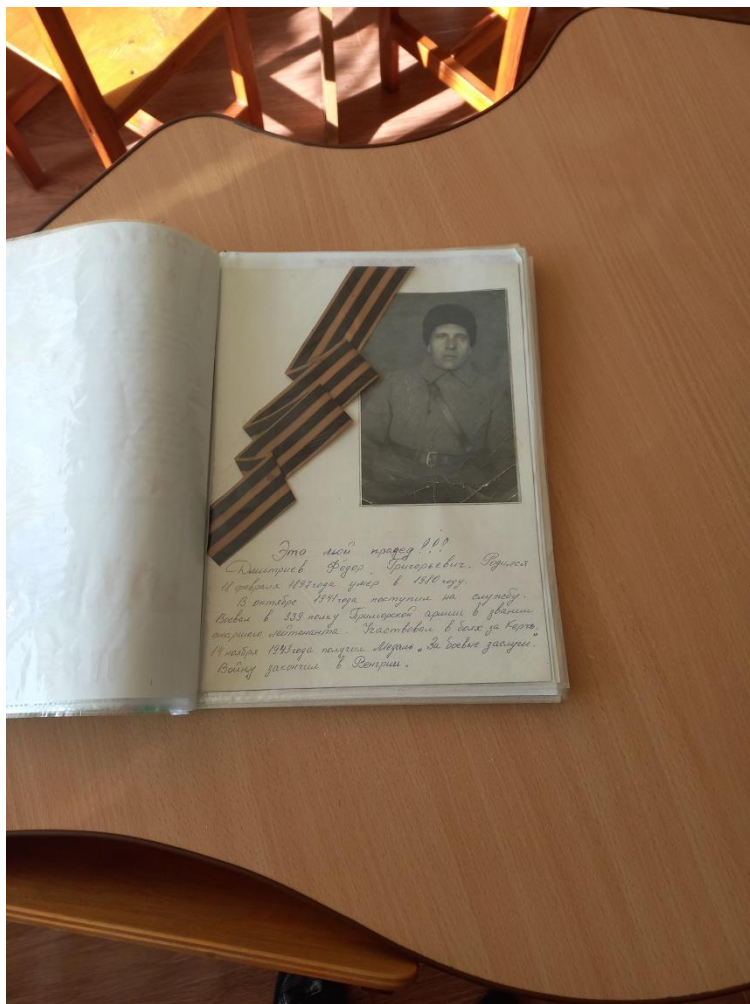 Это мой прадед!!!
Дмитриев Фёдор Григорьевич. Родился
11 февраля 1897 года умер в 1980 году.
В октябре 1941 года поступил на службу.
Воевал в 339 полку Приморской армии в звании
старшего лейтенанта. Участвовал в боях за Керчь.
19 ноября 1943 года получил Медаль "За боевые заслуги".
Войну закончил в Венгрии.